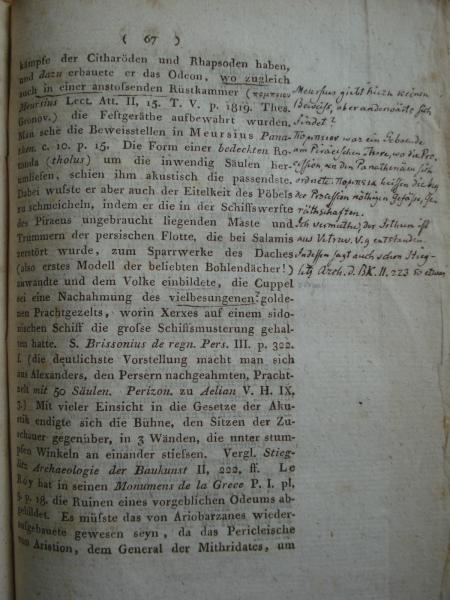 ( 67 )
kämpfe der Citharöden und Rhapsoden haben,
und dazu erbauete er das Odeon, wo zugleich
auch in einer anstofsenden Rüstkammer (πομπειον
Meursius Lect. Att. II, 15. T. V. p. 1819. Thes.
Gronov.) die Festgeräthe aufbewahrt wurden.
Man sehe die Beweisstellen in Meursius Pana-
then. c. 10. p. 15. Die Form einer bedeckten Ro-
tunda (tholus) um die inwendig Säulen her-
umliefen, schien ihm akustisch die passendste.
Dabei wufste er aber auch der Eitelkeit des Pöbels
zu schmeicheln, indem er die in der Schiffswerfte
des Piraeus ungebraucht liegenden Maste und
Trümmern der persischen Flotte, die bei Salamis
zerstört wurde, zum Sparrwerke des Daches
(also erstes Modell der beliebten Bohlendächer!)
anwandte und dem Volke einbildete, die Cuppel
sei eine Nachahmung des vielbesungenen golde-
nen Prachtgezelts, worin Xerxes auf einem sido-
nischen Schiff die grofse Schiffsmusterung gehal-
ten hatte. S. Brissonius de regn. Pers. III. p. 322.
f. (die deutlichste Vorstellung macht man sich
aus Alexanders, den Persern nachgeahmten, Pracht-
zelt mit 50 Säulen. Perizon. zu Aelian V. H. IX,
3.) Mit vieler Einsicht in die Gesetze der Aku-
stik endigte sich die Bühne, den Sitzen der Zu-
schauer gegenüber, in 3 Wänden, die unter stum-
pfen Winkeln an einander stiefsen. Vergl. Stieg-
litz Archaeologie der Baukunst II, 222. ff. Le
Roy hat in seinen Monumens de la Grece P. I. pl.
5. p. 18. die Ruinen eines vorgeblichen Odeums ab-
gebildet. Es müfste das von Ariobarzanes wieder-
aufgebauete gewesen seyn, da das Pericleische
von Aristion, dem General der Mithridates, um
Meursius giebt hierzu keinen
Beweis, aber anderwärts sich
findet?
Πομπειον war ein Gebäude
am Piräeischen Thore, wo die Pro-
cession an den Panathenäen sich
ordnete. Πομπεια heissen die bey
der Procession nöthigen Gefäße, Ge-
räthschaften.
Ich vermuthe, der Irrthum ist
aus Vitruv. V. 9 entstanden.
Indessen sagt auch schon Stieg-
litz Arch. d. BK. II. 223 so etwas